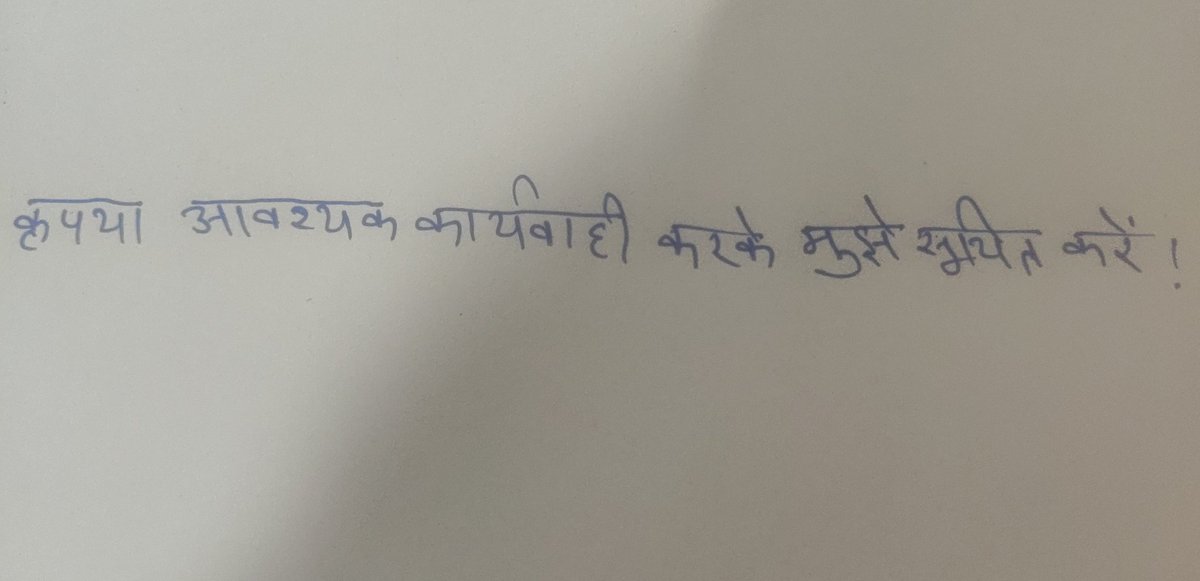 कृपया आवश्यक कार्यवाही करके मुझे सूचित करें!